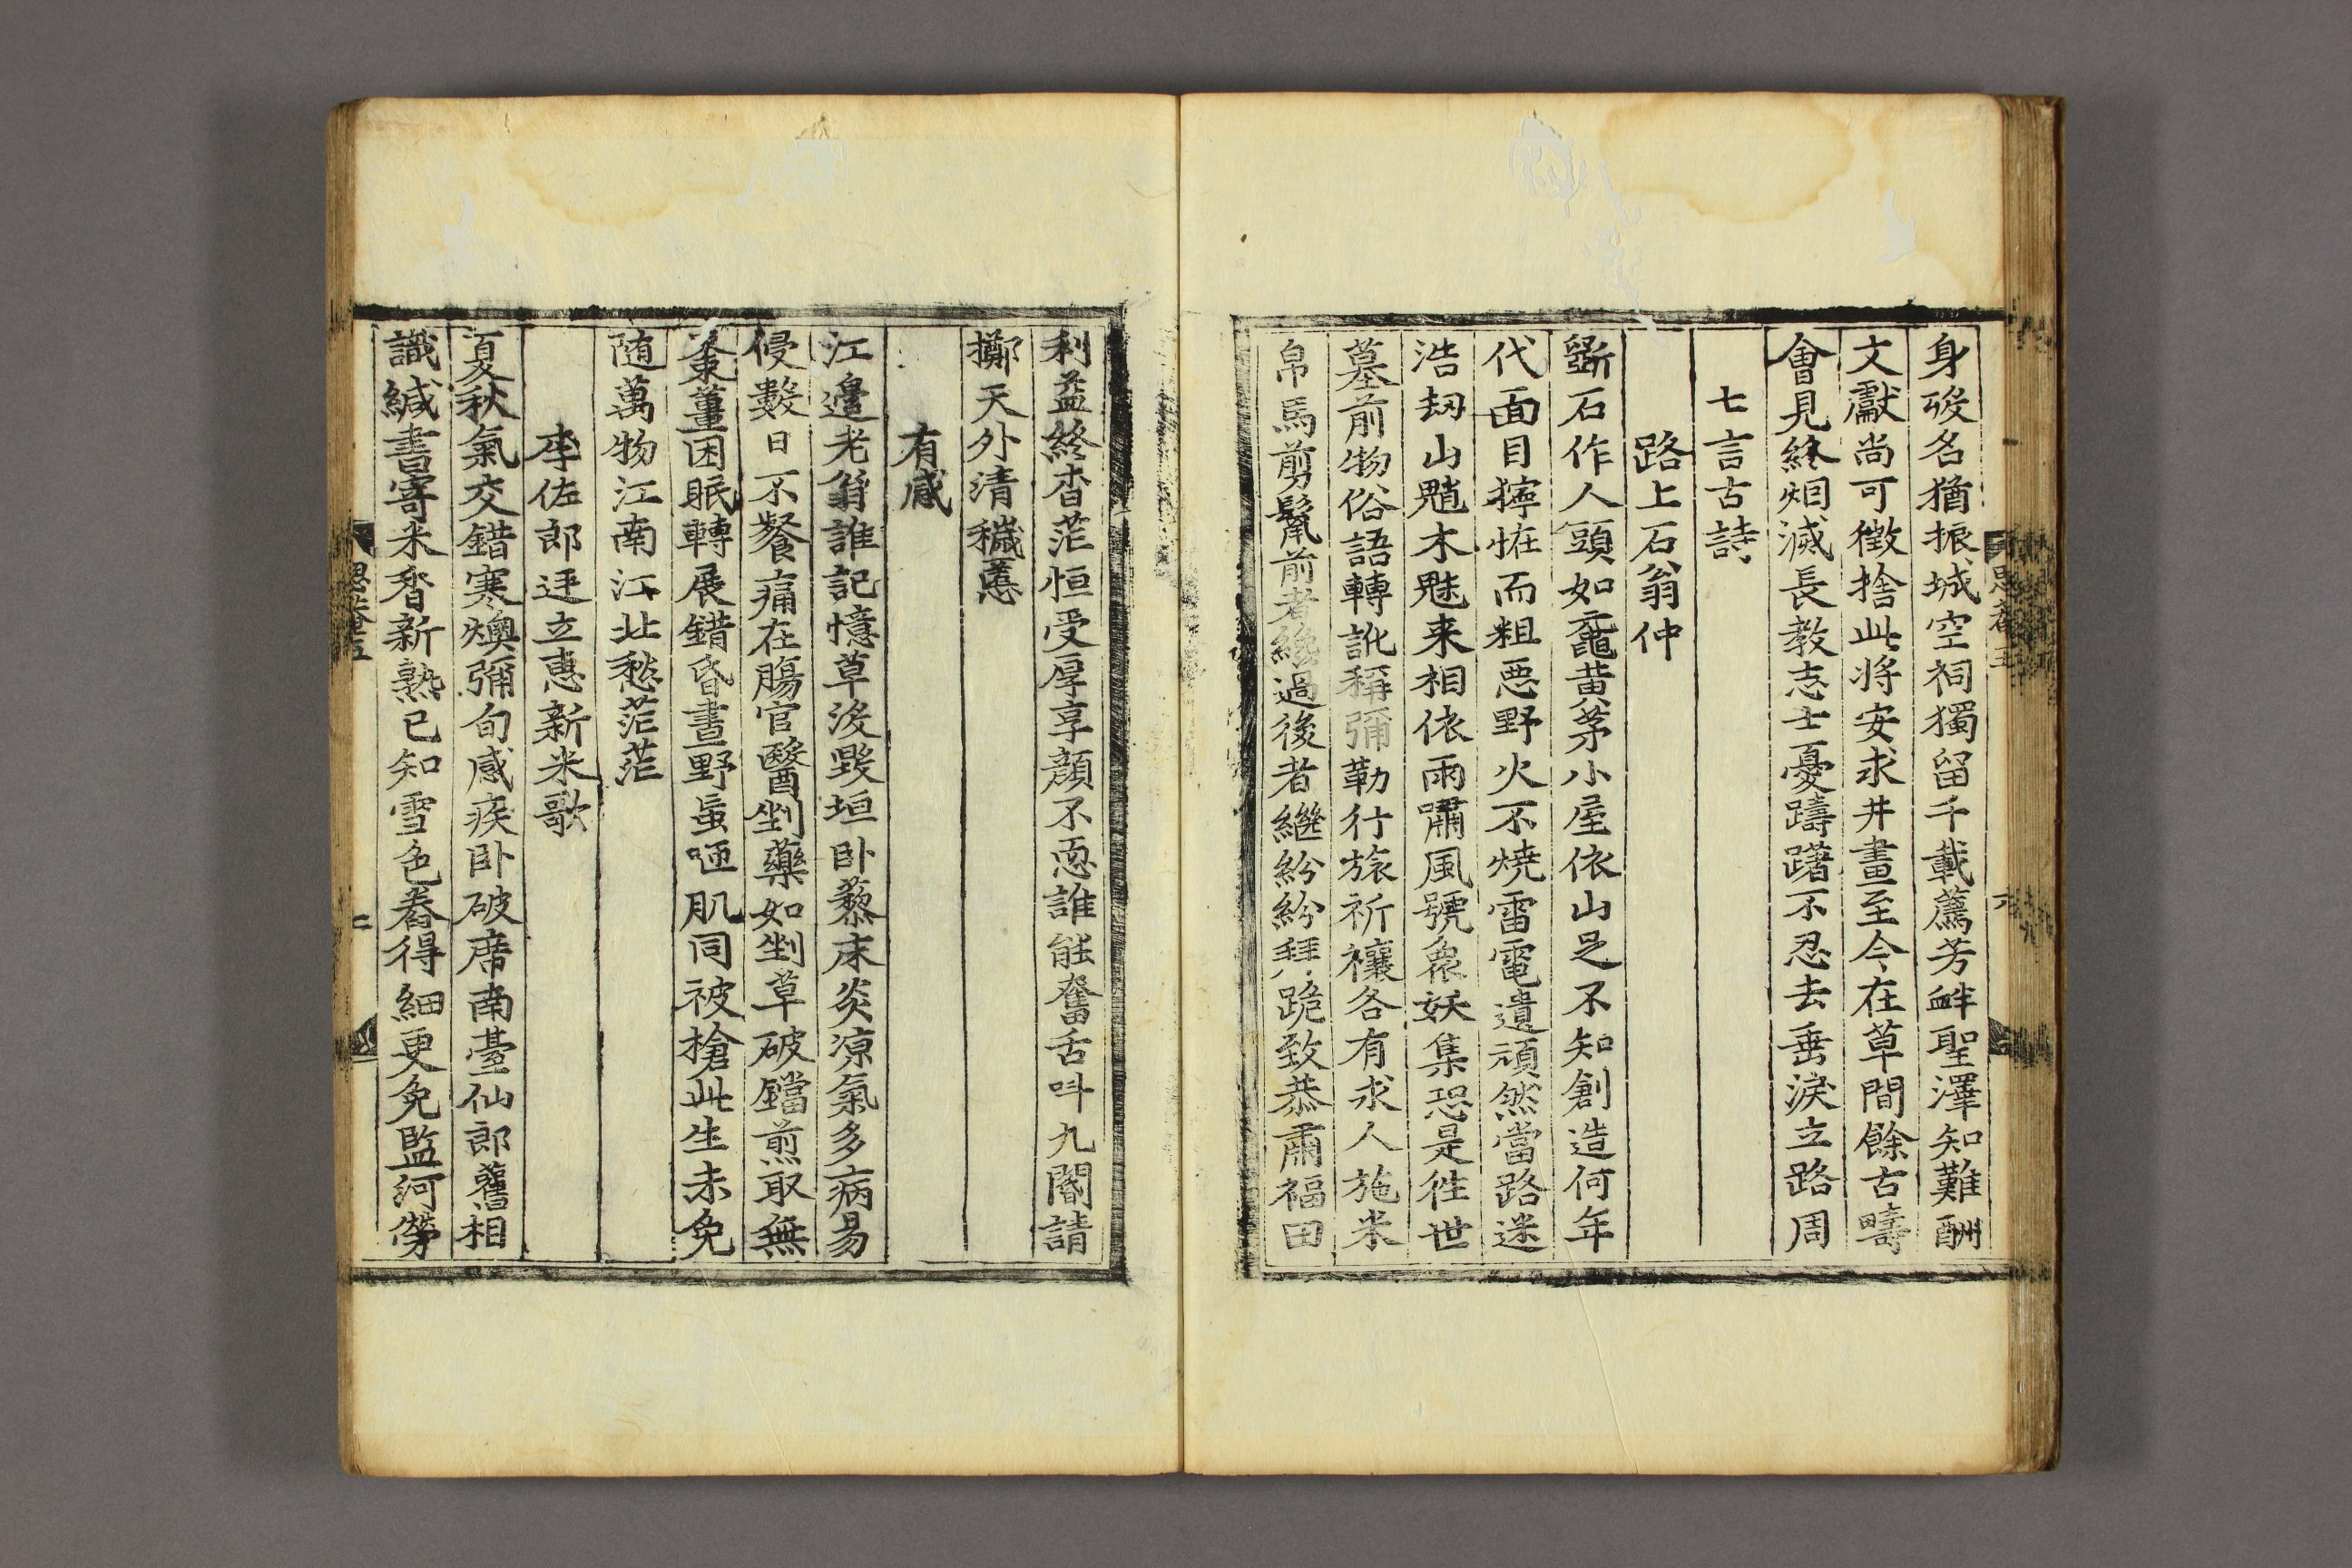 身後名猶振城空祠獨留千載薦芳衅聖澤知難酬
文獻尚可徵捨此將安求井畫至今在草間餘古疇
會見終烟滅長教志士憂躊躇不忍去垂淚立路周
七言古詩
路上石翁仲
斲石作人頭如黿黃茅小屋依山足不知創造何年
代面目獰恠而粗惡野火不燒雷電遺頑然當路迷
浩刼山魈木魅来相依雨嘯風號衆妖集恐是徃世
墓前物俗語轉訛稱彌勒行旅祈禳各有求人施米
帛馬剪鬃前者纔過後者繼紛紛拜跪致恭肅福田
利益終杳茫恒受厚享顔不恧誰能奮舌叫九閽請
擲天外清穢慝
有感
江邊老翁誰記憶草沒毀垣卧藜床炎凉氣多病易
侵數日不餐痛在腸官醫剉藥如剉草破鐺煎取無
棗薑困眠轉展錯昏晝野䖟咂肌同被槍此生未免
随萬物江南江北愁茫茫
李佐郎廷立惠新米歌
夏秋氣交錯寒燠彌旬感疾卧破席南臺仙郎舊相
識緘書寄米香新熟已知雪色舂得細更免監河勞